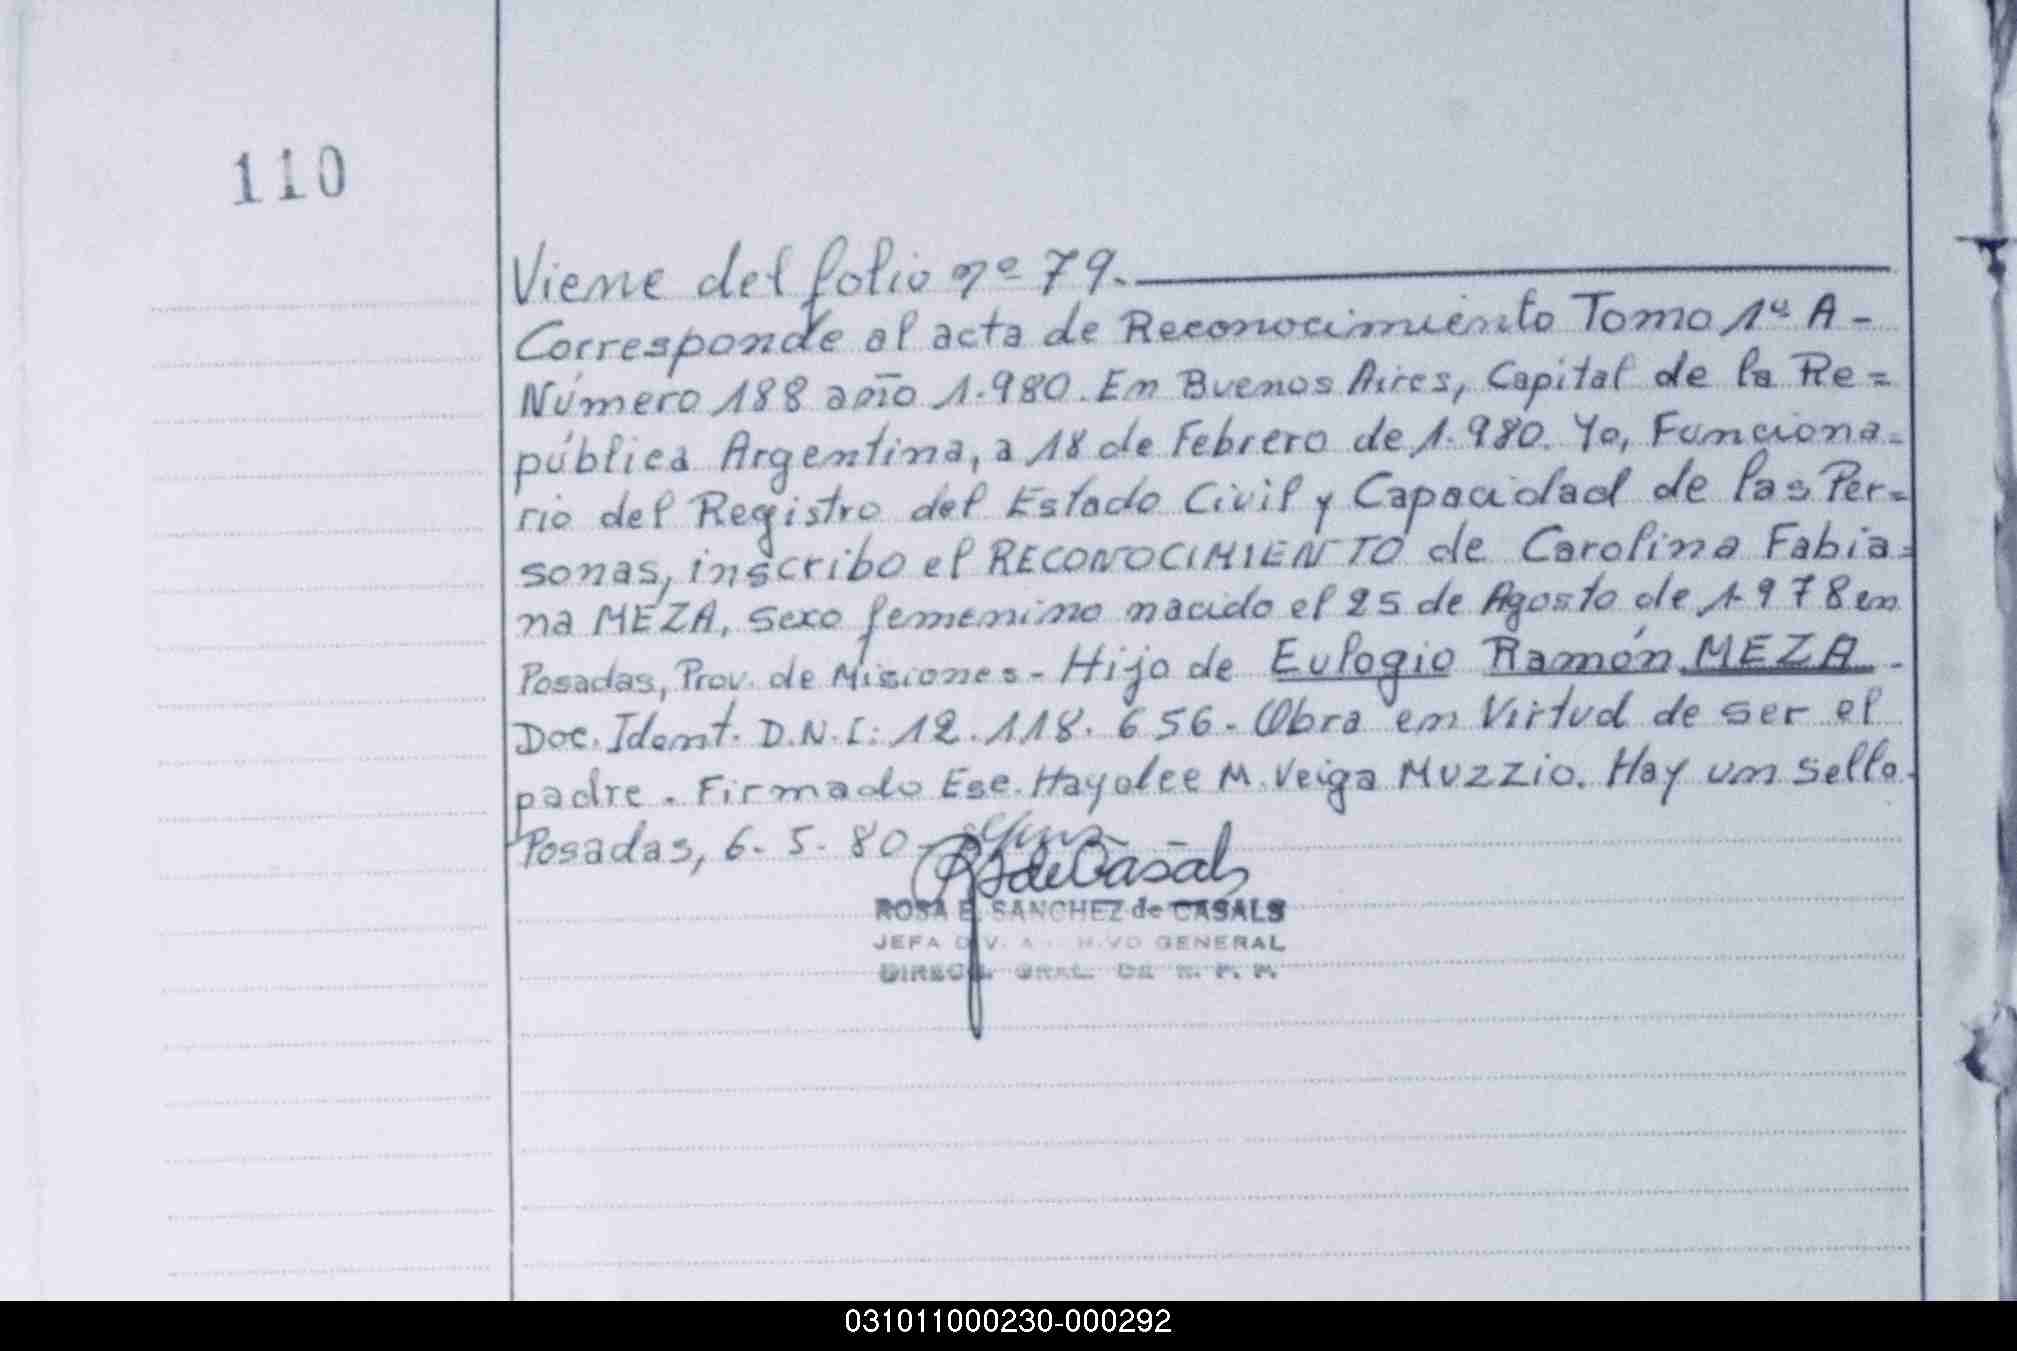 110
Viene del folio nº 79.
Corresponde al acta de Reconocimiento Tomo 1º A-
Número 188 año 1.980. En Buenos Aires, Capital de la Re=
pública Argentina, a 18 de Febrero de 1.980. Yo, Funciona=
rio del Registro del Estado Civil y Capacidad de las Per=
sonas, inscribo el RECONOCIMIENTO de Carolina Fabia=
na MEZA, sexo femenino nacido el 25 de Agosto de 1978 en
Posadas, Prov. de Misiones - Hijo de Eulogio Ramón MEZA -
Doc. Ident. D.N.I: 12.118.656 - Obra en Virtud de ser el
padre. Firmado Ese. Haydee M. Veiga Muzzio. Hay un sello.
Posadas, 6. 5. 80
ROSA E. SANCHEZ de CASALS
JEFA DIV. GENERAL
GRAL. DE R. P. P.
031011000230-000292